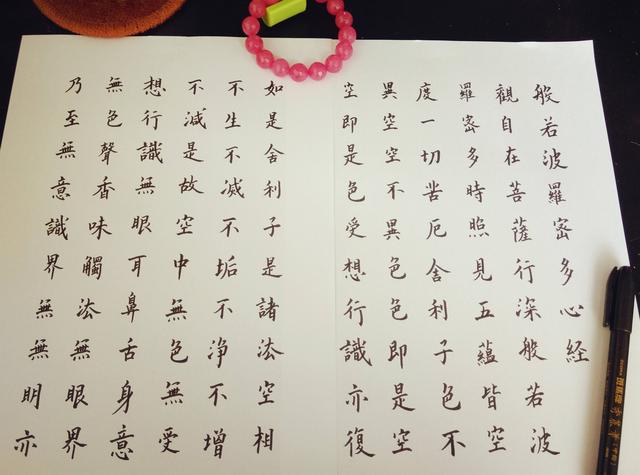 般若波羅密多心経
觀自在菩薩行深般若波
羅密多時照見五蘊皆空
度一切苦厄舍利子色不
異空空不異色色即是空
空即是色受想行識亦復
如是舍利子是諸法空相
不生不滅不垢不净不增
不減是故空中無色無受
想行識無眼耳鼻舌身意
無色聲香味觸法無眼界
乃至無意識界無無明亦